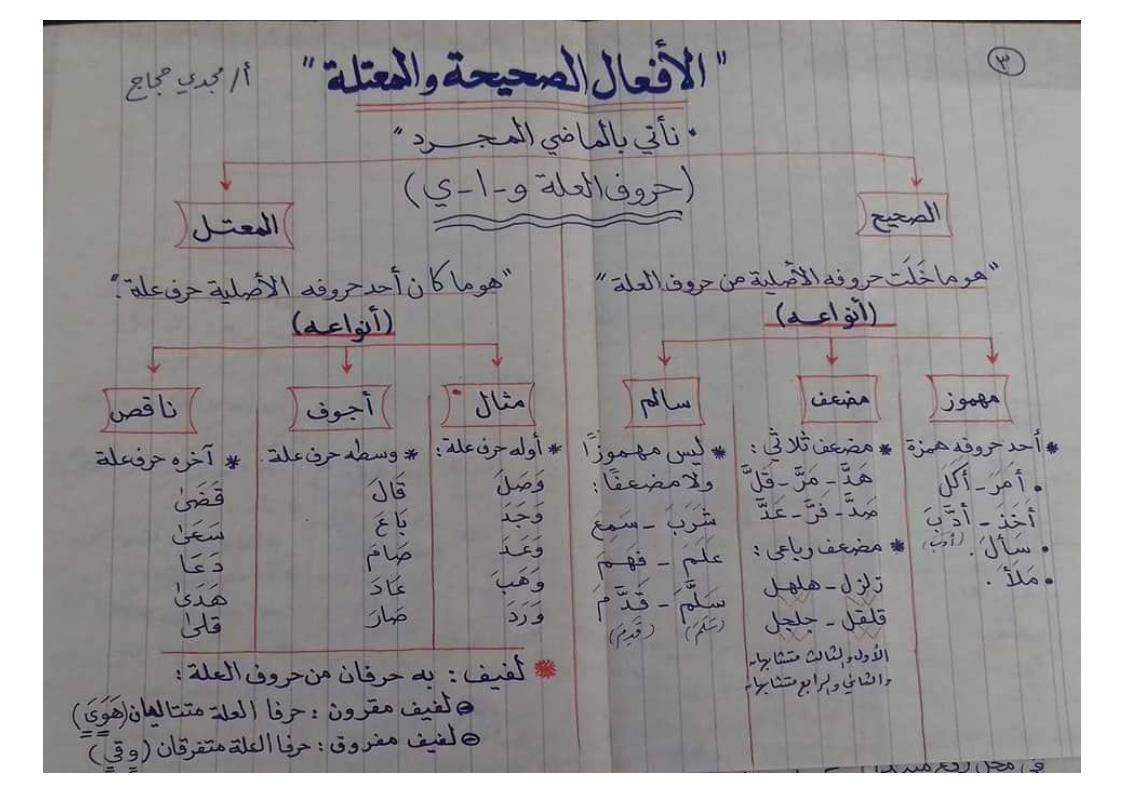 ٣
"الأفعال الصحيحة والمعتلة"
أ/ مجدي حجاج
" نأتي بالماضي المجرد "
(حروف العلة و-ا-ي)
الصحيح
"هو ما خَلَت حروفه الأصلية من حروف العلة"
(أنواعه)
مهموز
* أحد حروفه همزة
• أَمَرَ - أَكَلَ
أَخَذَ - أَدَّبَ
(أدب)
• سَأَلَ .
• مَلَأَ .
مضعف
* مضعف ثلاثي :
هَدَّ - مَرَّ - قَلَّ
صَدَّ - فَرَّ - عَدَّ
* مضعف رباعى :
زلزل - هلهل
قلقل - جلجل
الأول والثالث متشابهان
والثاني والرابع متشابهان
سالم
* ليس مهموزًا
ولا مضعفًا :
شَرِبَ - سَمِعَ
عَلِمَ - فَهِمَ
سَلَّمَ - قَدَّمَ
(سَلِمَ) (قَدِمَ)
المعتل
"هو ما كان أحد حروفه الأصلية حرف علة :"
(أنواعه)
مثال
* أوله حرف علة :
وَصَلَ
وَجَدَ
وَعَدَ
وَهَبَ
وَرَدَ
أجوف
* وسطه حرف علة .
قَالَ
بَاعَ
صَامَ
عَادَ
صَارَ
ناقص
* آخره حرف علة
قَضَىٰ
سَعَىٰ
دَعَا
هَدَىٰ
قلىٰ
* لفيف : به حرفان من حروف العلة :
لفيف مقرون : حرفا العلة متتاليان (هَوَىَ)
لفيف مفروق : حرفا العلة متفرقان (وقي)
فى محل رفع